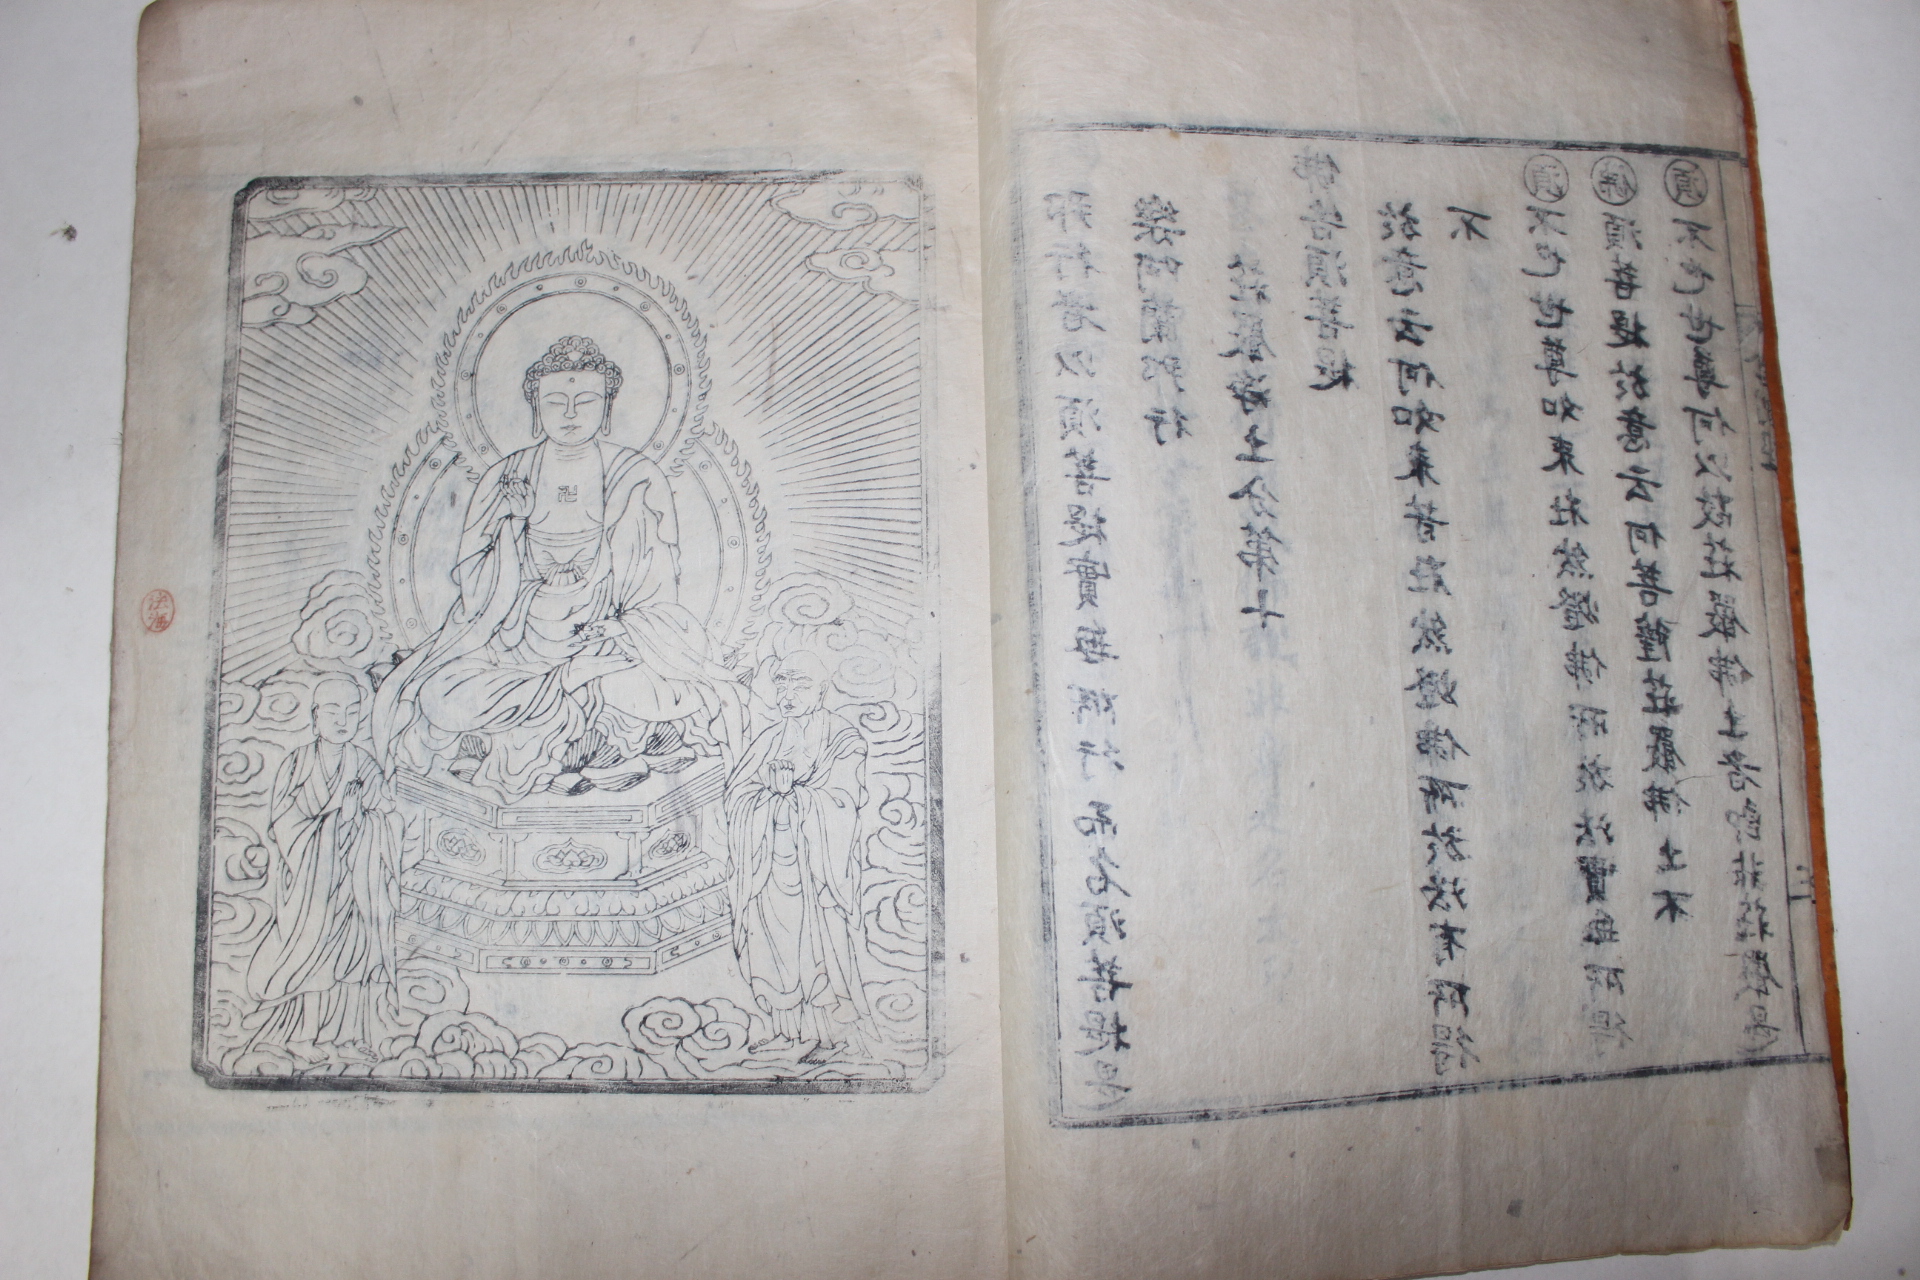 法海
那行者以須菩提實無所行而名須菩提是
樂阿蘭那行
莊嚴淨土分第十
佛告須菩提
於意云何如來昔在然燈佛所於法有所得
不
須不也世尊如來在然燈佛所於法實無所得
佛須菩提於意云何菩薩莊嚴佛土不
須不也世尊何以故莊嚴佛土者即非莊嚴是